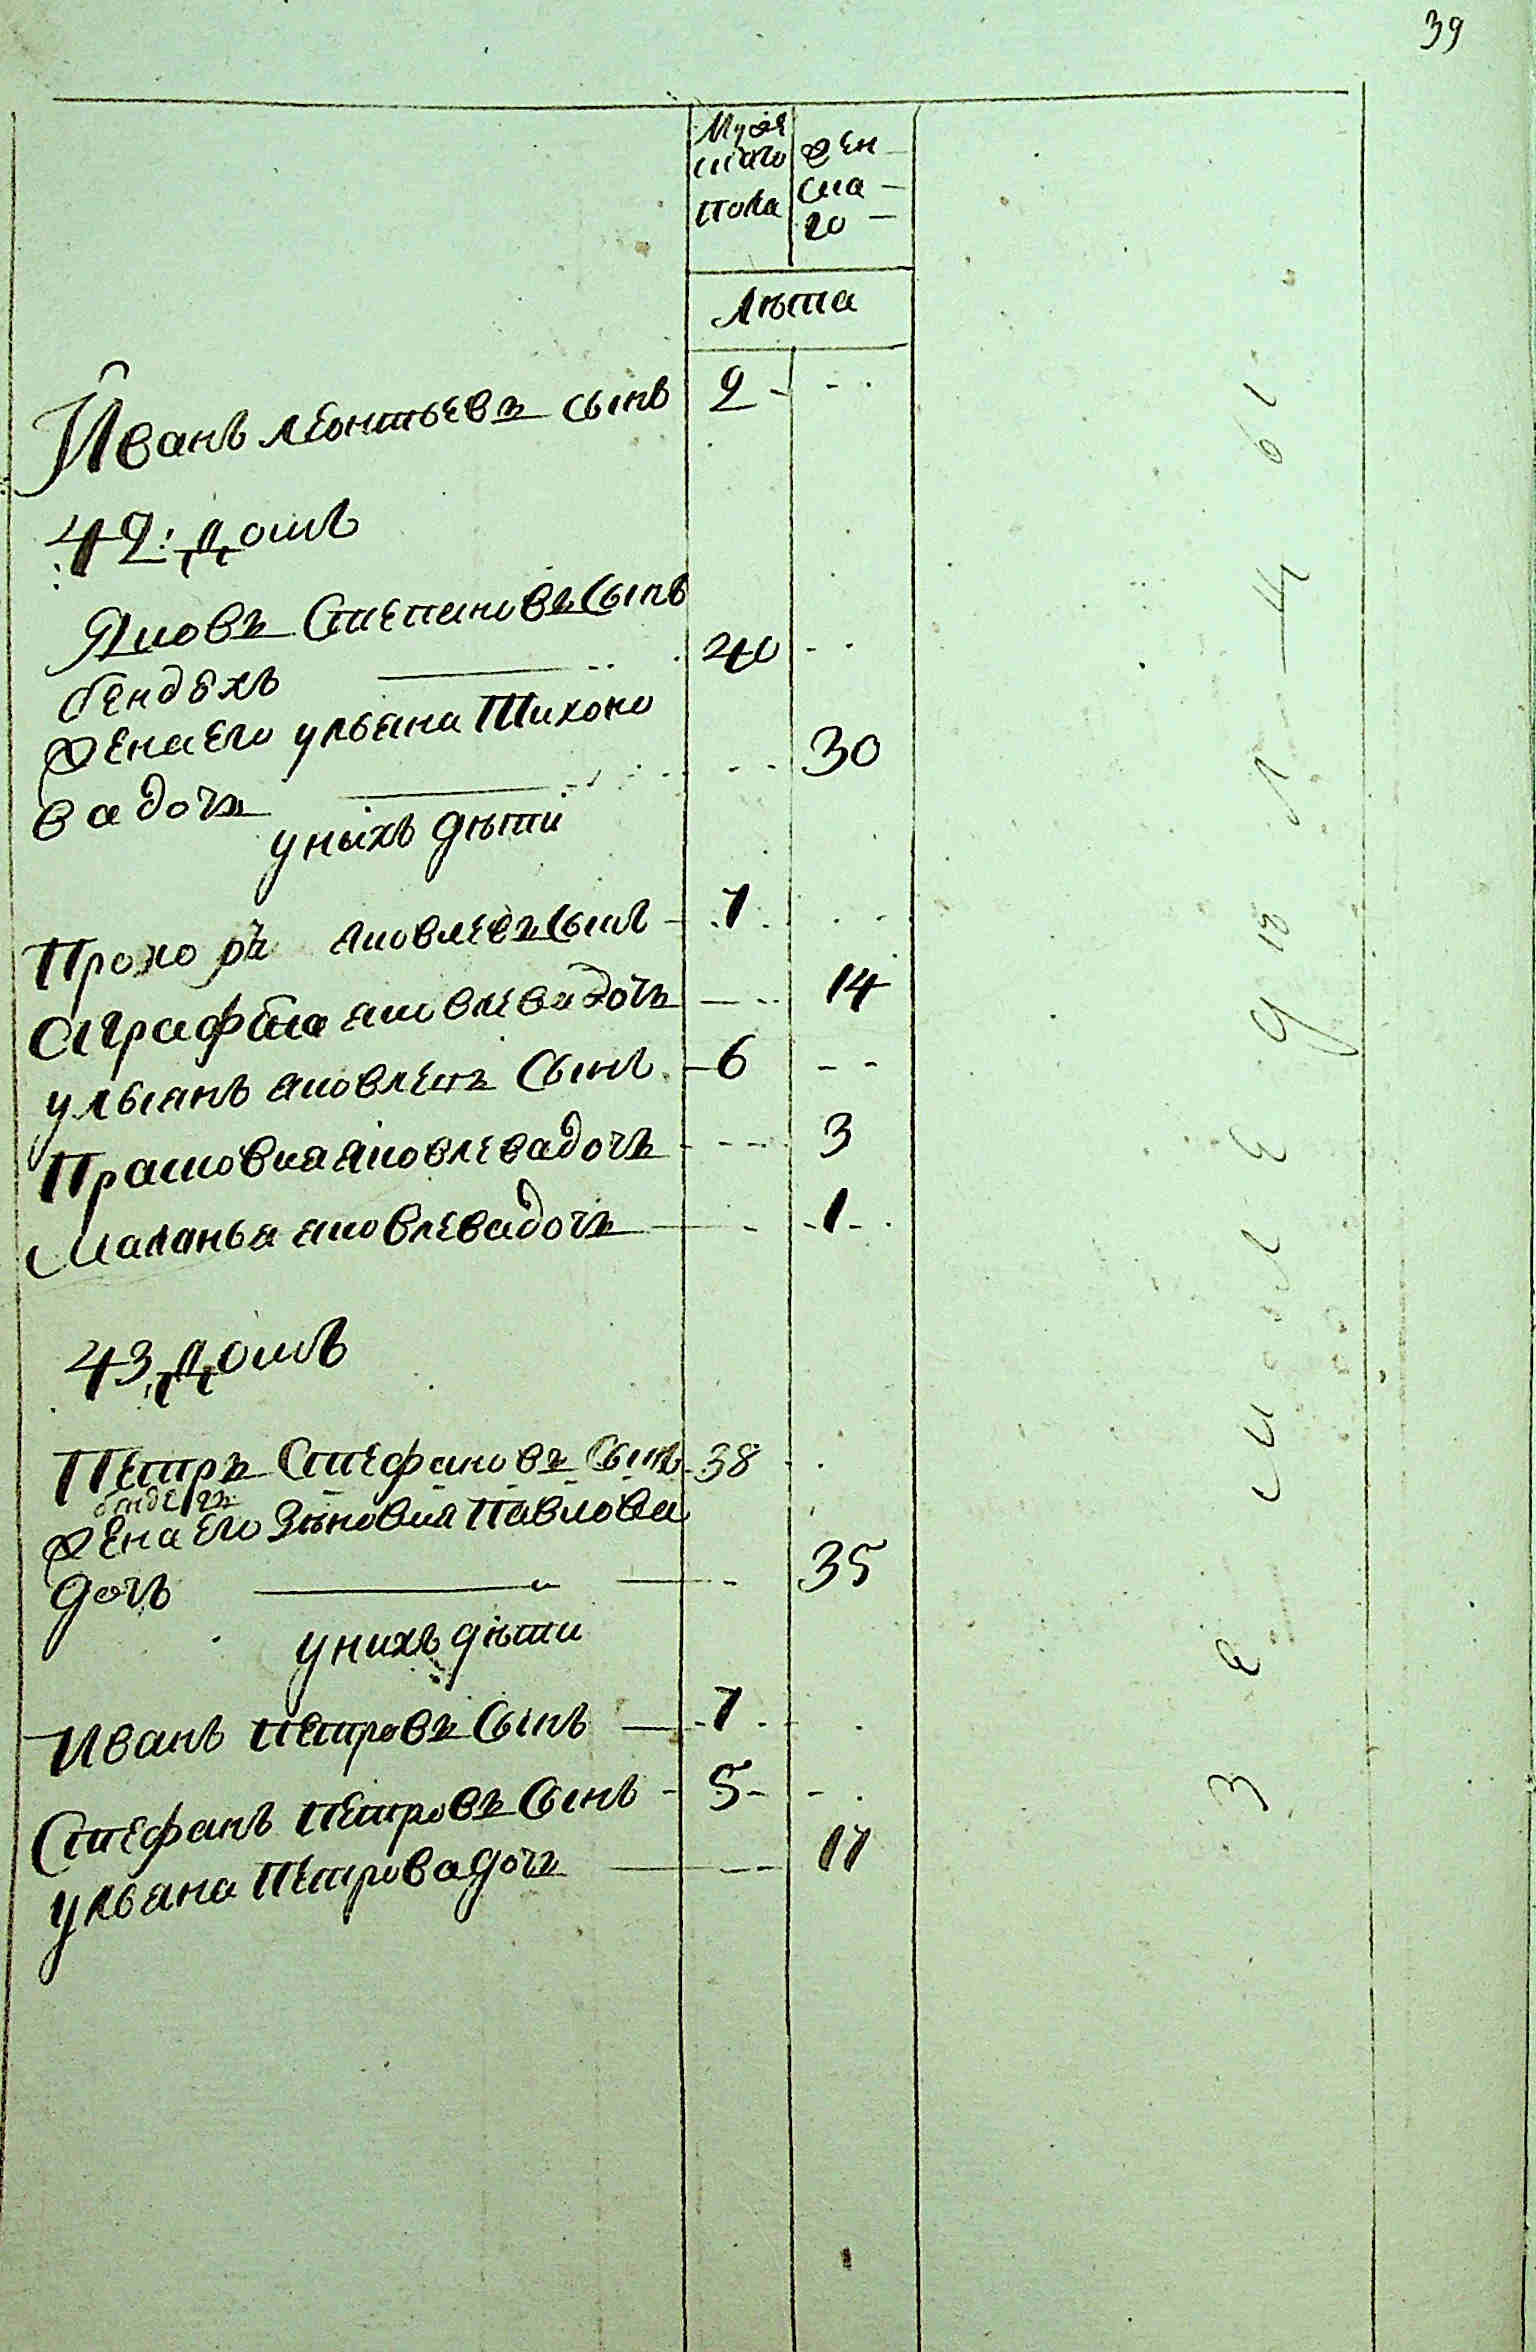 39
Муже
скаго
пола
Жен
ска
го
Лѣта
Иванъ леонтьевъ сынъ 2
42: домъ
Яковъ Степановъ Сынъ
бендехъ 40
Жена его ульяна Тихоно
ва дочъ 30
уныхъ дѣти
Прохоръ яковлевъ Сынъ 7
Аграфена яковлева дочъ 14
ульянъ яковлевъ Сынъ 6
Прасковия яковлева дочъ 3
Маланья яковлева дочъ 1
43 домъ
Петръ Стефановъ Сынъ 38
Жена его Зѣновия Павлова
дочъ 35
унихъ дѣти
Иванъ Петровъ Сынъ 7
Стефанъ Петровъ Сынъ 5
ульяна Петрова дочъ 17
земле дѣл цы